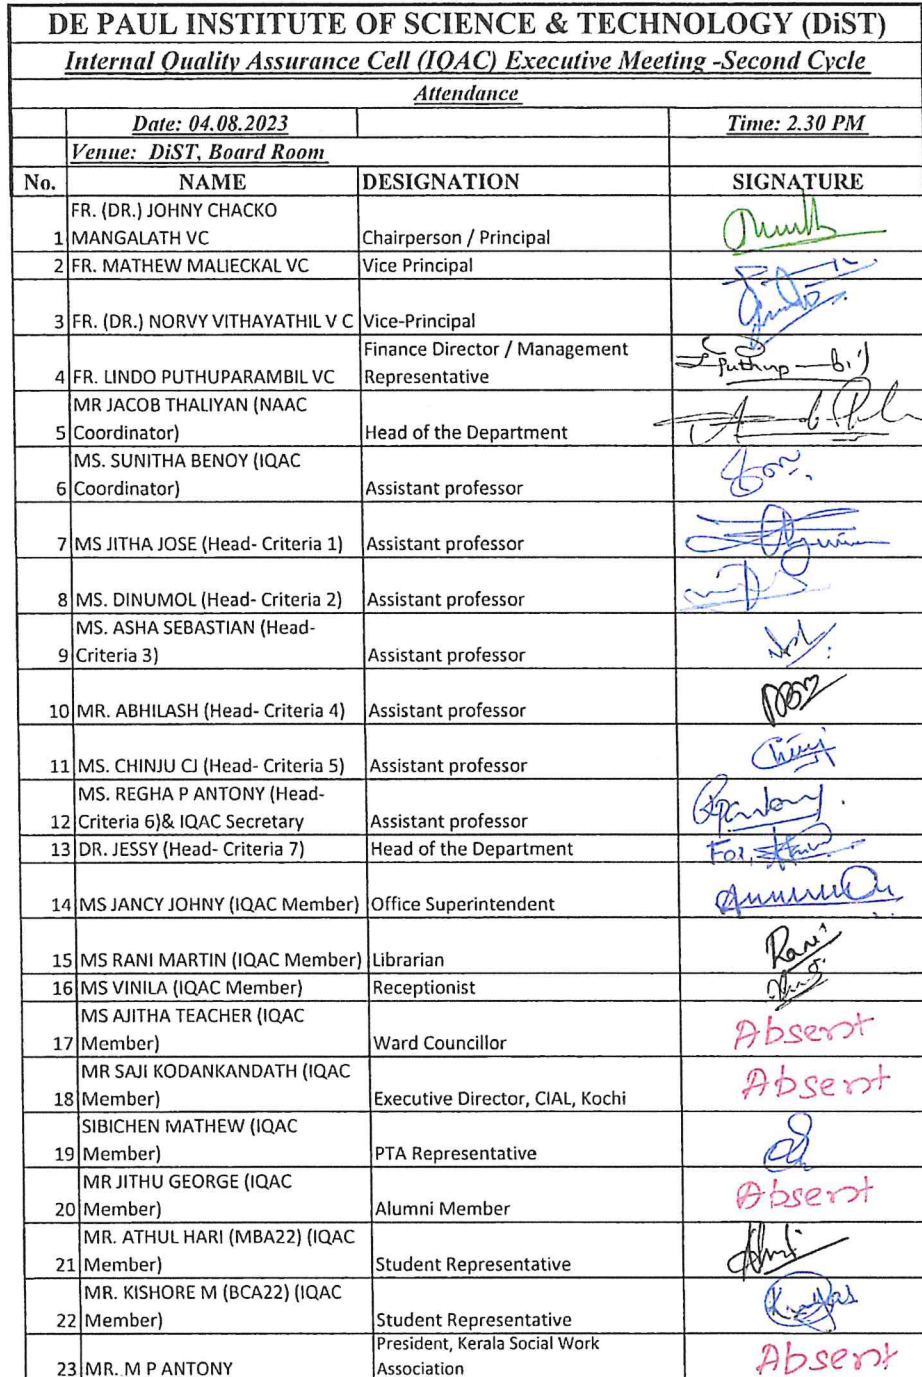 DE PAUL INSTITUTE OF SCIENCE & TECHNOLOGY (DiST)
Internal Quality Assurance Cell (IQAC) Executive Meeting -Second Cycle
Attendance
Date: 04.08.2023 Time: 2.30 PM
Venue: DiST, Board Room
No. NAME DESIGNATION SIGNATURE
FR. (DR.) JOHNY CHACKO
1 MANGALATH VC Chairperson / Principal
2 FR. MATHEW MALIECKAL VC Vice Principal
3 FR. (DR.) NORVY VITHAYATHIL V C Vice-Principal
Finance Director / Management
4 FR. LINDO PUTHUPARAMBIL VC Representative
MR JACOB THALIYAN (NAAC
5 Coordinator) Head of the Department
MS. SUNITHA BENOY (IQAC
6 Coordinator) Assistant professor
7 MS JITHA JOSE (Head- Criteria 1) Assistant professor
8 MS. DINUMOL (Head- Criteria 2) Assistant professor
MS. ASHA SEBASTIAN (Head-
9 Criteria 3) Assistant professor
10 MR. ABHILASH (Head- Criteria 4) Assistant professor
11 MS. CHINJU CJ (Head- Criteria 5) Assistant professor
MS. REGHA P ANTONY (Head-
12 Criteria 6)& IQAC Secretary Assistant professor
13 DR. JESSY (Head- Criteria 7) Head of the Department For,
14 MS JANCY JOHNY (IQAC Member) Office Superintendent
15 MS RANI MARTIN (IQAC Member) Librarian Rani
16 MS VINILA (IQAC Member) Receptionist
MS AJITHA TEACHER (IQAC
17 Member) Ward Councillor Absent
MR SAJI KODANKANDATH (IQAC
18 Member) Executive Director, CIAL, Kochi Absent
SIBICHEN MATHEW (IQAC
19 Member) PTA Representative
MR JITHU GEORGE (IQAC
20 Member) Alumni Member Absent
MR. ATHUL HARI (MBA22) (IQAC
21 Member) Student Representative
MR. KISHORE M (BCA22) (IQAC
22 Member) Student Representative
President, Kerala Social Work
23 MR. M P ANTONY Association Absent